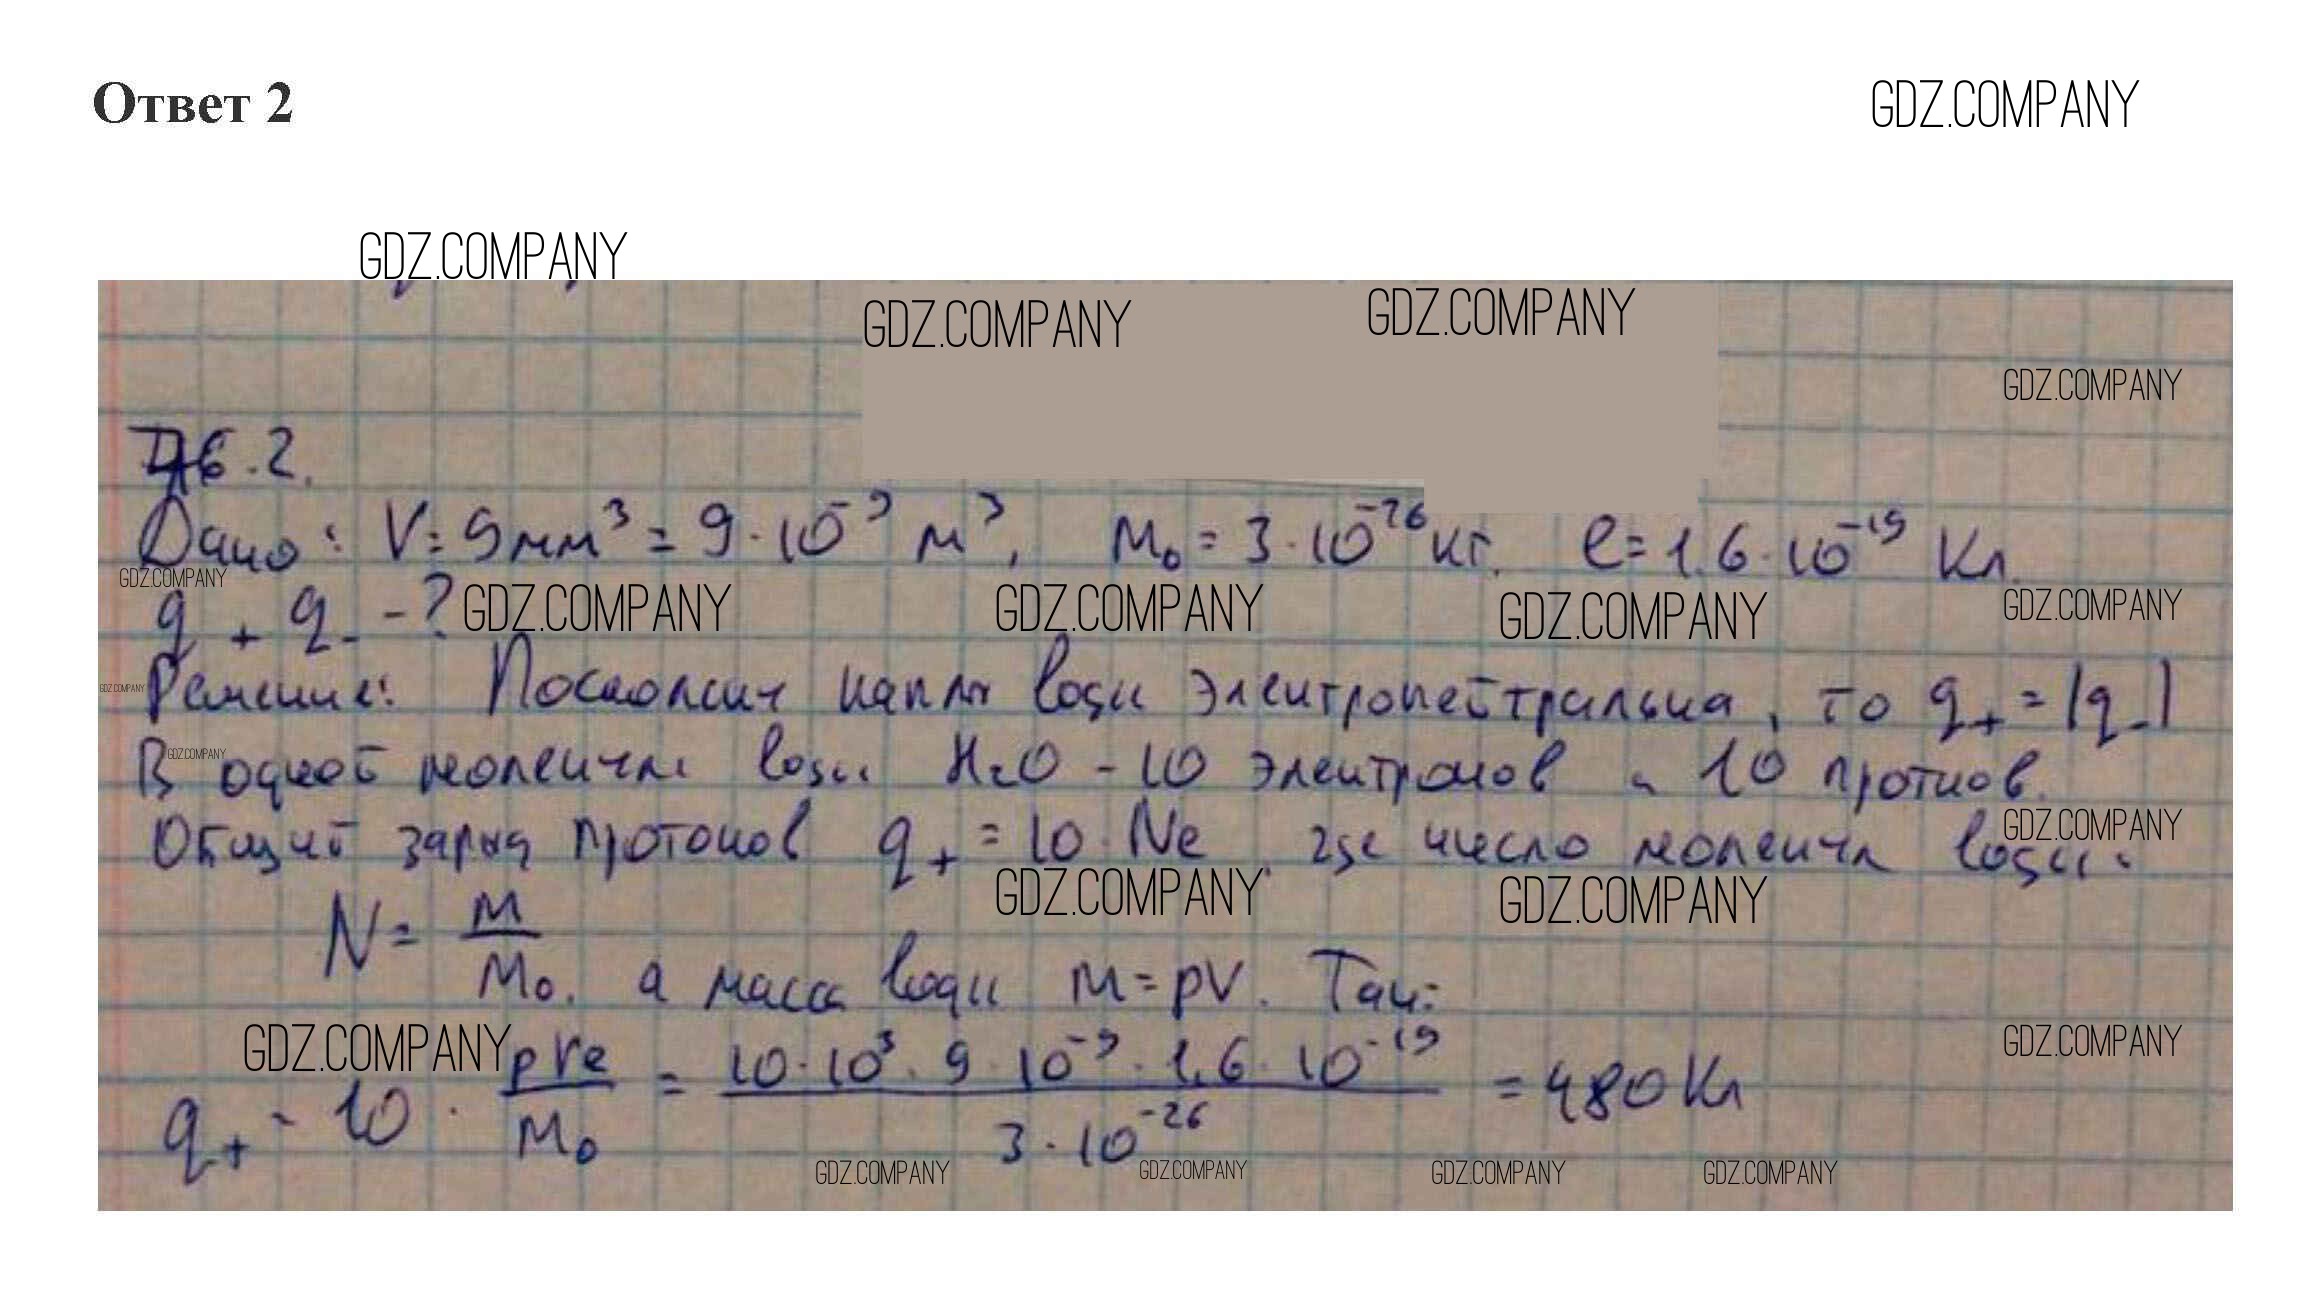 Ответ 2
GDZ.COMPANY
GDZ.COMPANY
GDZ.COMPANY GDZ.COMPANY
GDZ.COMPANY
46.2.
Дано: V = 9 мм³ = 9 · 10⁻⁹ м³, m₀ = 3 · 10⁻²⁶ кг. e = 1,6 · 10⁻¹⁹ Кл.
GDZ.COMPANY
q₊ q₋ - ?
GDZ.COMPANY GDZ.COMPANY GDZ.COMPANY GDZ.COMPANY
Решение: Поскольку капля воды электронейтральна, то q₊ = |q₋|
GDZ.COMPANY
В одной молекуле воды H₂O - 10 электронов и 10 протнов.
GDZ.COMPANY
Общий заряд протонов q₊ = 10 · Ne, где число молекул воды:
GDZ.COMPANY
GDZ.COMPANY GDZ.COMPANY
N = m / m₀, а масса воды m = ρV. Так:
GDZ.COMPANY GDZ.COMPANY
q₊ = 10 · ρVe / m₀ = 10 · 10³ · 9 · 10⁻⁹ · 1,6 · 10⁻¹⁹ / 3 · 10⁻²⁶ = 480 Кл
GDZ.COMPANY GDZ.COMPANY GDZ.COMPANY GDZ.COMPANY